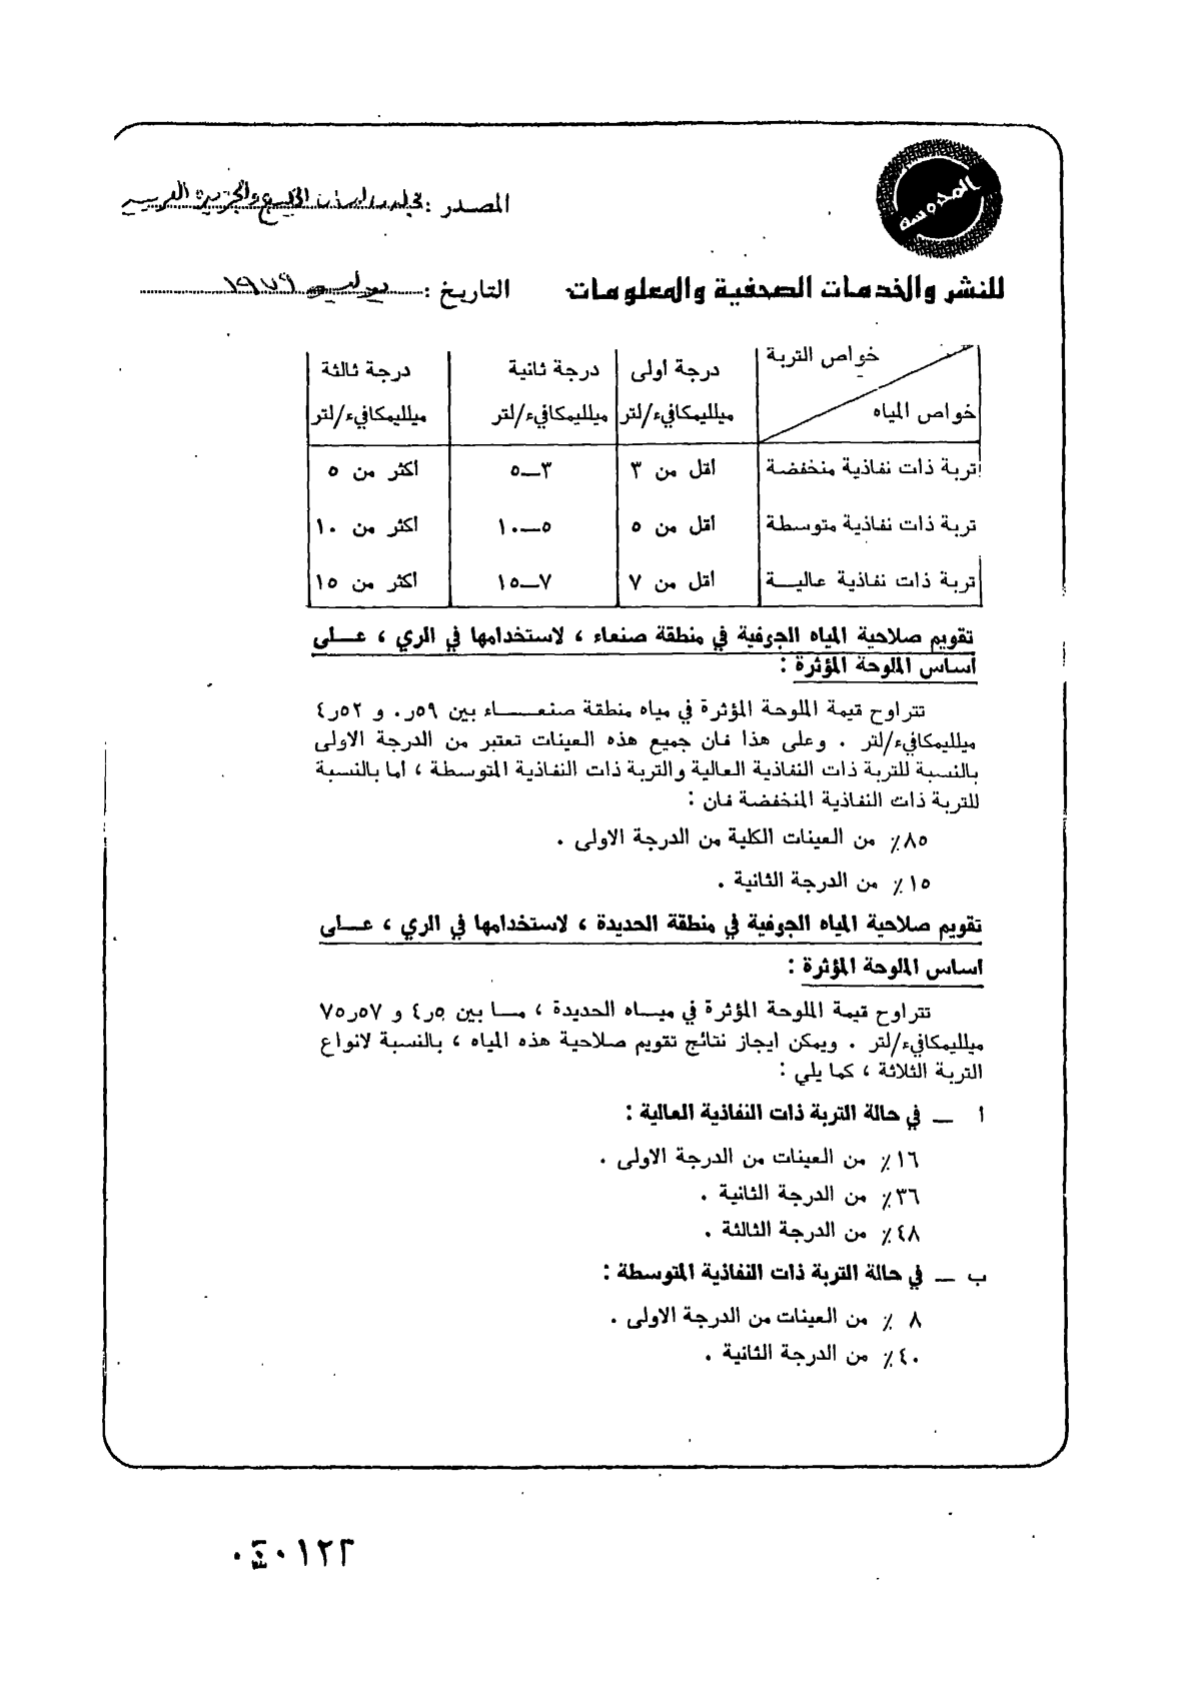 المحروسة
المصدر : مجلة دراسات الخليج والجزيرة العربية
للنشر والخدمات الصحفية والمعلومات
التاريخ : يوليو ١٩٧٩
خواص التربة
خواص المياه
درجة اولى ميلليمكافيء/لتر
درجة ثانية ميلليمكافيء/لتر
درجة ثالثة ميلليمكافيء/لتر
تربة ذات نفاذية منخفضة اقل من ٣ ٣ــ٥ اكثر من ٥
تربة ذات نفاذية متوسطة اقل من ٥ ٥ــ١٠ اكثر من ١٠
تربة ذات نفاذية عاليــة اقل من ٧ ٧ــ١٥ اكثر من ١٥
تقويم صلاحية المياه الجوفية في منطقة صنعاء ، لاستخدامها في الري ، عـــلى
اساس الملوحة المؤثرة :
تتراوح قيمة الملوحة المؤثرة في مياه منطقة صنعــــاء بين ٥٩ر٠ و ٥٢ر٤
ميلليمكافيء/لتر . وعلى هذا فان جميع هذه العينات تعتبر من الدرجة الاولى
بالنسبة للتربة ذات النفاذية العالية والتربة ذات النفاذية المتوسطة ، اما بالنسبة
للتربة ذات النفاذية المنخفضة فان :
٨٥٪ من العينات الكلية من الدرجة الاولى .
١٥٪ من الدرجة الثانية .
تقويم صلاحية المياه الجوفية في منطقة الحديدة ، لاستخدامها في الري ، عـــلى
اساس الملوحة المؤثرة :
تتراوح قيمة الملوحة المؤثرة في ميــاه الحديدة ، مــا بين ٥ر٤ و ٥٧ر٧٥
ميلليمكافيء/لتر . ويمكن ايجاز نتائج تقويم صلاحية هذه المياه ، بالنسبة لانواع
التربة الثلاثة ، كما يلي :
أ ــ في حالة التربة ذات النفاذية العالية :
١٦٪ من العينات من الدرجة الاولى .
٣٦٪ من الدرجة الثانية .
٤٨٪ من الدرجة الثالثة .
ب ــ في حالة التربة ذات النفاذية المتوسطة :
٨ ٪ من العينات من الدرجة الاولى .
٤٠٪ من الدرجة الثانية .